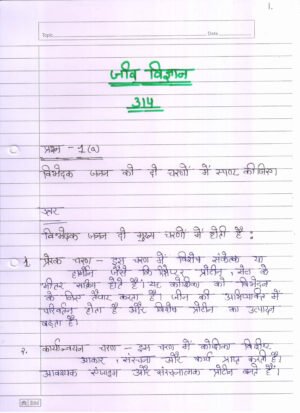 1.
Topic Date
जीव विज्ञान
314
प्रश्न - 1 (a)
विभेदक जनन को दो चरणों में स्पष्ट कीजिए।
उत्तर
विभेदक जनन दो मुख्य चरणों में होती है :
1. प्रेरक चरण - इस चरण में विशेष संकेतक या
हार्मोन जैसे कि रिसेप्टर प्रोटीन, सेल के
भीतर सक्रिय होते है। यह कोशिका को विभेदन
के लिए तैयार करता है। जीन की अभिव्यक्ति में
परिवर्तन होता है और विशेष प्रोटीन का उत्पादन
बढ़ता है।
2. कार्यान्वयन चरण - इस चरण में कोशिका विशिष्ट
आकार, संरचना और कार्य प्राप्त करती है।
आवश्यक एंजाइम और संरचनात्मक प्रोटीन बनते हैं।